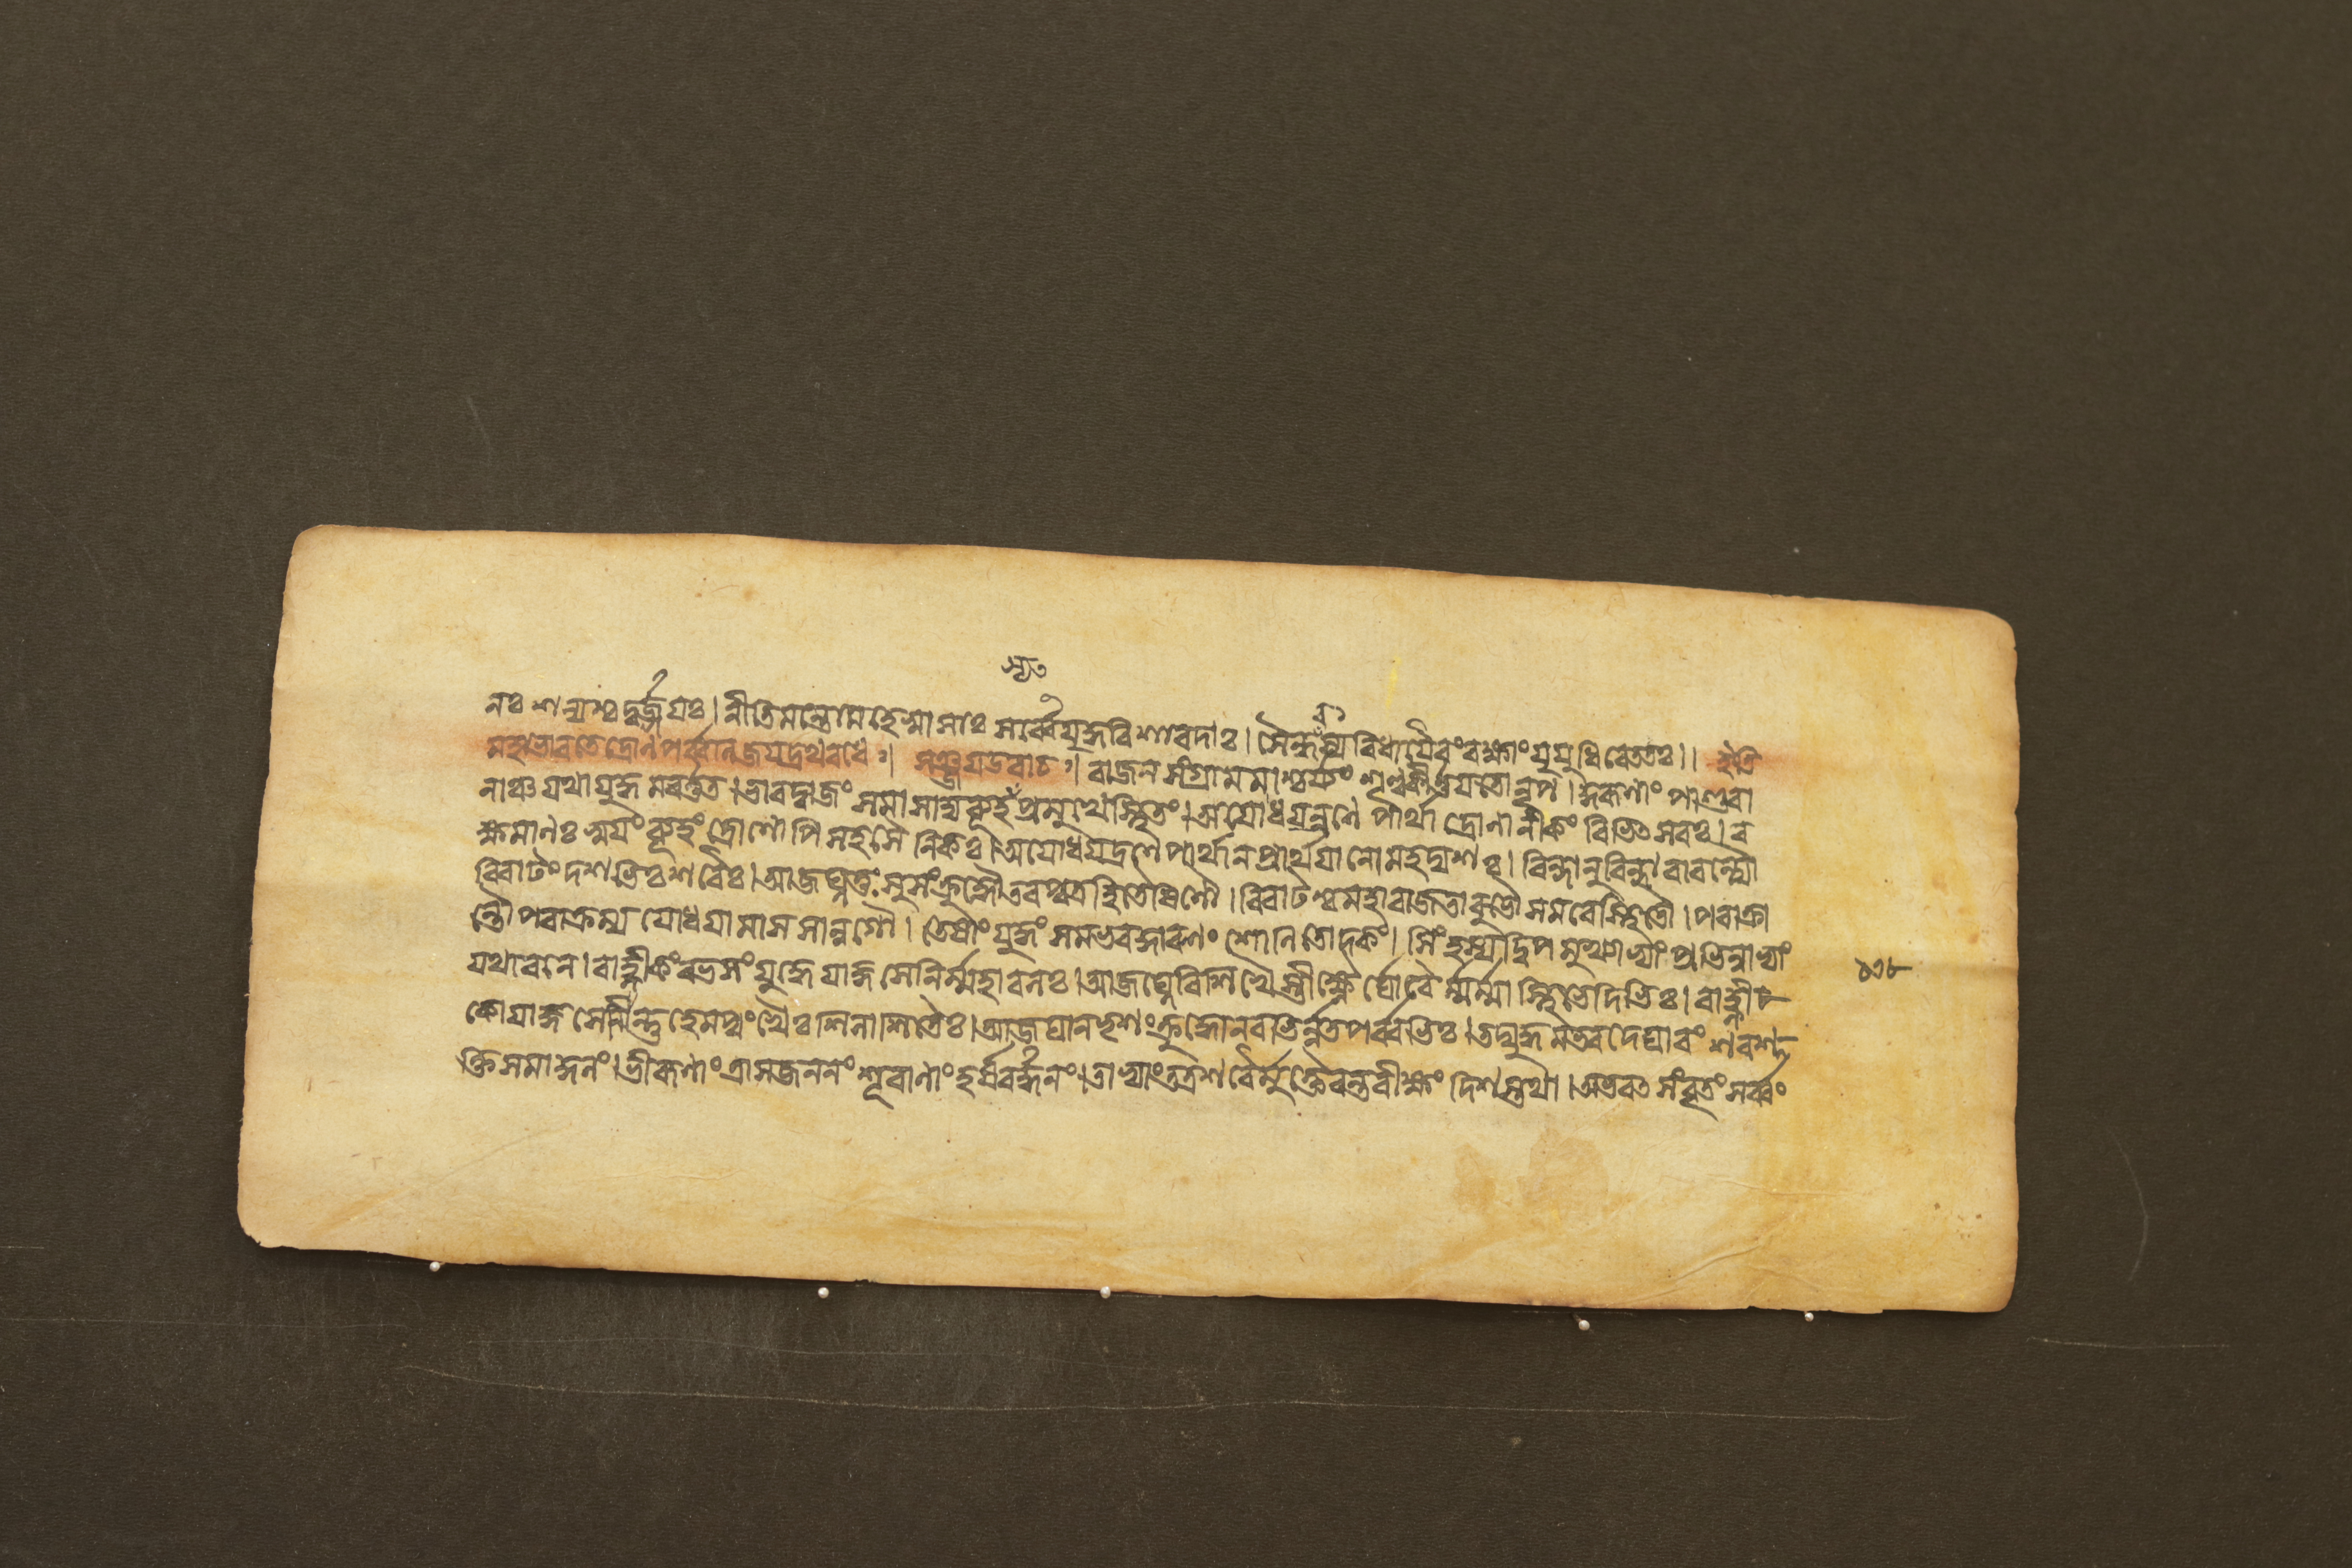 নঃ শল্যশ্চ দুর্জ্জয়ঃ। নীতিমন্তো মহেষ্বাসাঃ সর্ব্বে যুদ্ধবিশারদাঃ। সৈন্ধবস্য বিধায়ৈবং রক্ষাং যুযুধিরে ততঃ।। ইতি
মহাভারতে দ্রোণপর্ব্বণি জয়দ্রথবধেঃ। সঞ্জয় উবাচঃ। রাজন সংগ্রামমাশ্চর্য্যং শৃণু কীর্ত্তয়তো নৃপ। কুরুণাং পাণ্ডবা
নাঞ্চ যথা যুদ্ধমবর্ত্তত। ভারদ্বাজং সমাসাদ্য ব্যূহ প্রমুখে স্থিতং। অযোধয়ন্রণে পার্থা দ্রোণানীকং বিভিত্সবঃ। র
ক্ষমাণাঃ স্বয়ং ব্যূহং দ্রোণোপি সহ সৈনিকৈঃ। অযোধয়দ্রণে পার্থান প্রার্থয়ানো মহদ্যশঃ। বিন্দানুবিন্দাবাবন্ত্যৌ
বিরাটং দশভিঃ শরৈঃ। আজঘ্নতুঃ সুসংক্রুদ্ধৌ তব পুত্রহিতৈষিণৌ। বিরাটশ্চ মহারাজ তাবুভৌ সমরে স্থিতৌ। পরাক্রা
ন্তৌ পরাক্রম্য যোধয়ামাস সানুগৌ। তেষাং যুদ্ধং সমভবদ্দারুণং শোনিতোদকং। সিংহস্য দ্বিপমুখ্যাভ্যাং প্রভিন্নাভ্যাং
যথা বনে। বাহ্লীকং রভসং যুদ্ধে যাজ্ঞসেনির্ম্মহাবলঃ। আজঘ্নে বিশিখৈস্তীক্ষ্ণৈর্ঘোরৈর্ম্মর্ম্মাস্থিভেদিভিঃ। বাহ্লী
কো যাজ্ঞসেনিন্তু হেমপুংখৈঃ শিলাশিতৈঃ। আজঘান ভৃশং ক্রুদ্ধো নবভির্ন্নতপর্ব্বভিঃ। তদ্যুদ্ধমভবদ্ঘোরং শরশ
ক্তিসমাকুলং। ভীরুণাং ত্রাসজননং শূরাণাং হর্ষবর্দ্ধনং। তাভ্যাং তত্র শরৈর্মুক্তৈরন্তরীক্ষং দিশস্তথা। অভবত সংবৃতং সর্ব্বং